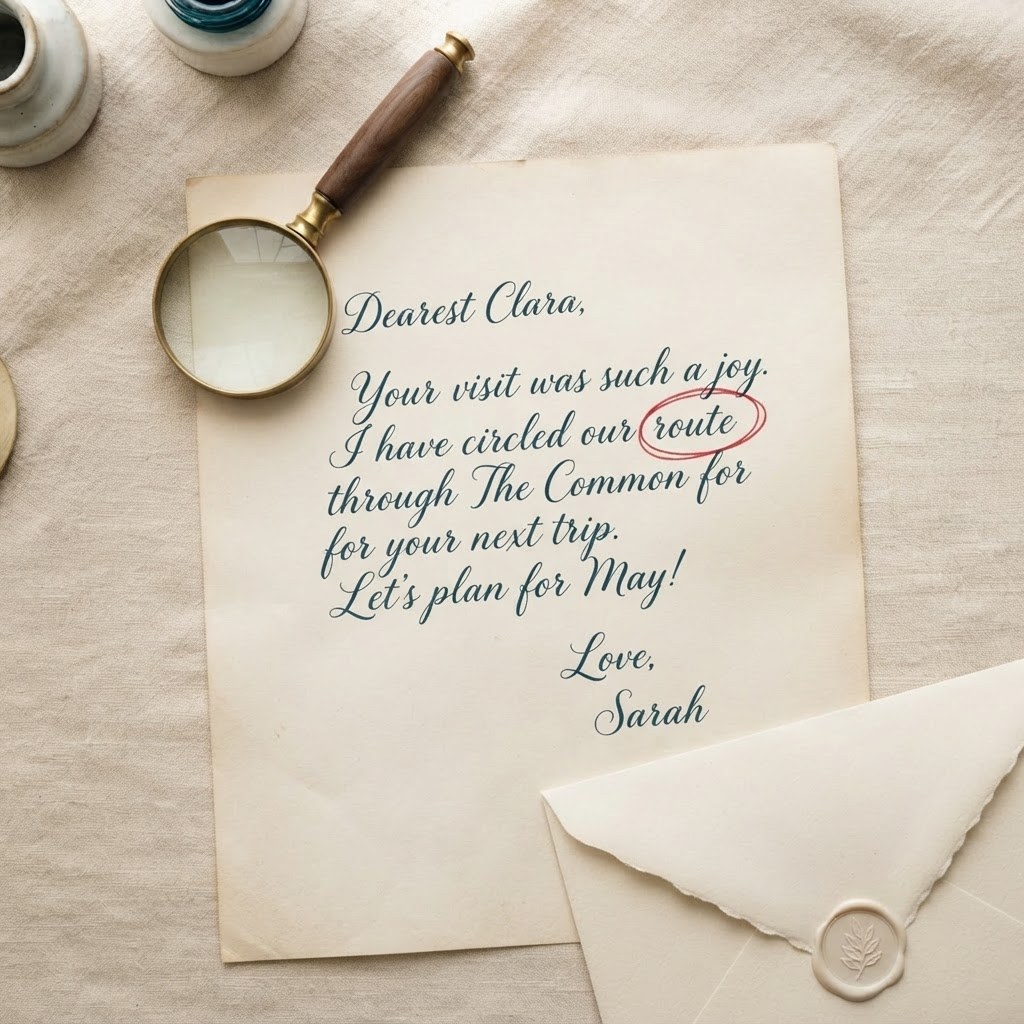 Dearest Clara,
Your visit was such a joy.
I have circled our route
through The Common for
for your next trip.
Let's plan for May!
Love,
Sarah